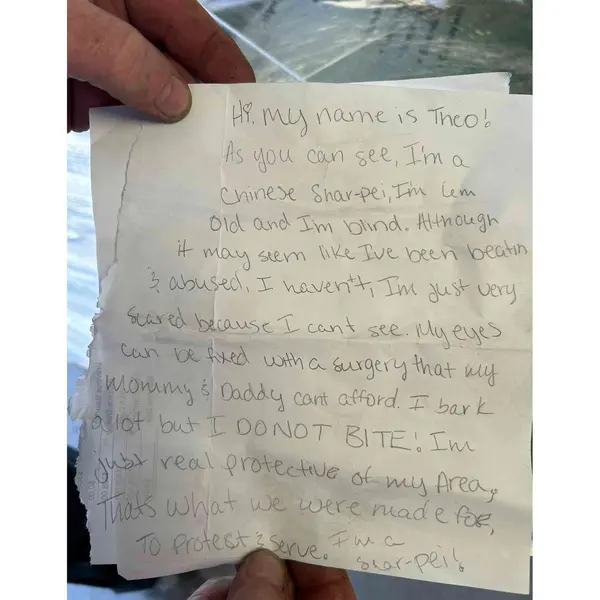 Hi. My name is Theo!
As you can see, I'm a
Chinese Shar-pei, I'm 6m
Old and I'm blind. Although
it may seem like I've been beatin
& abused, I haven't, I'm just very
scared because I cant see. My eyes
can be fixed with a surgery that my
Mommy & Daddy cant afford. I bark
a lot but I DO NOT BITE! Im
Just real protective of my Area,
Thats what we were made for,
To protect & serve. I'm a
Shar-pei!